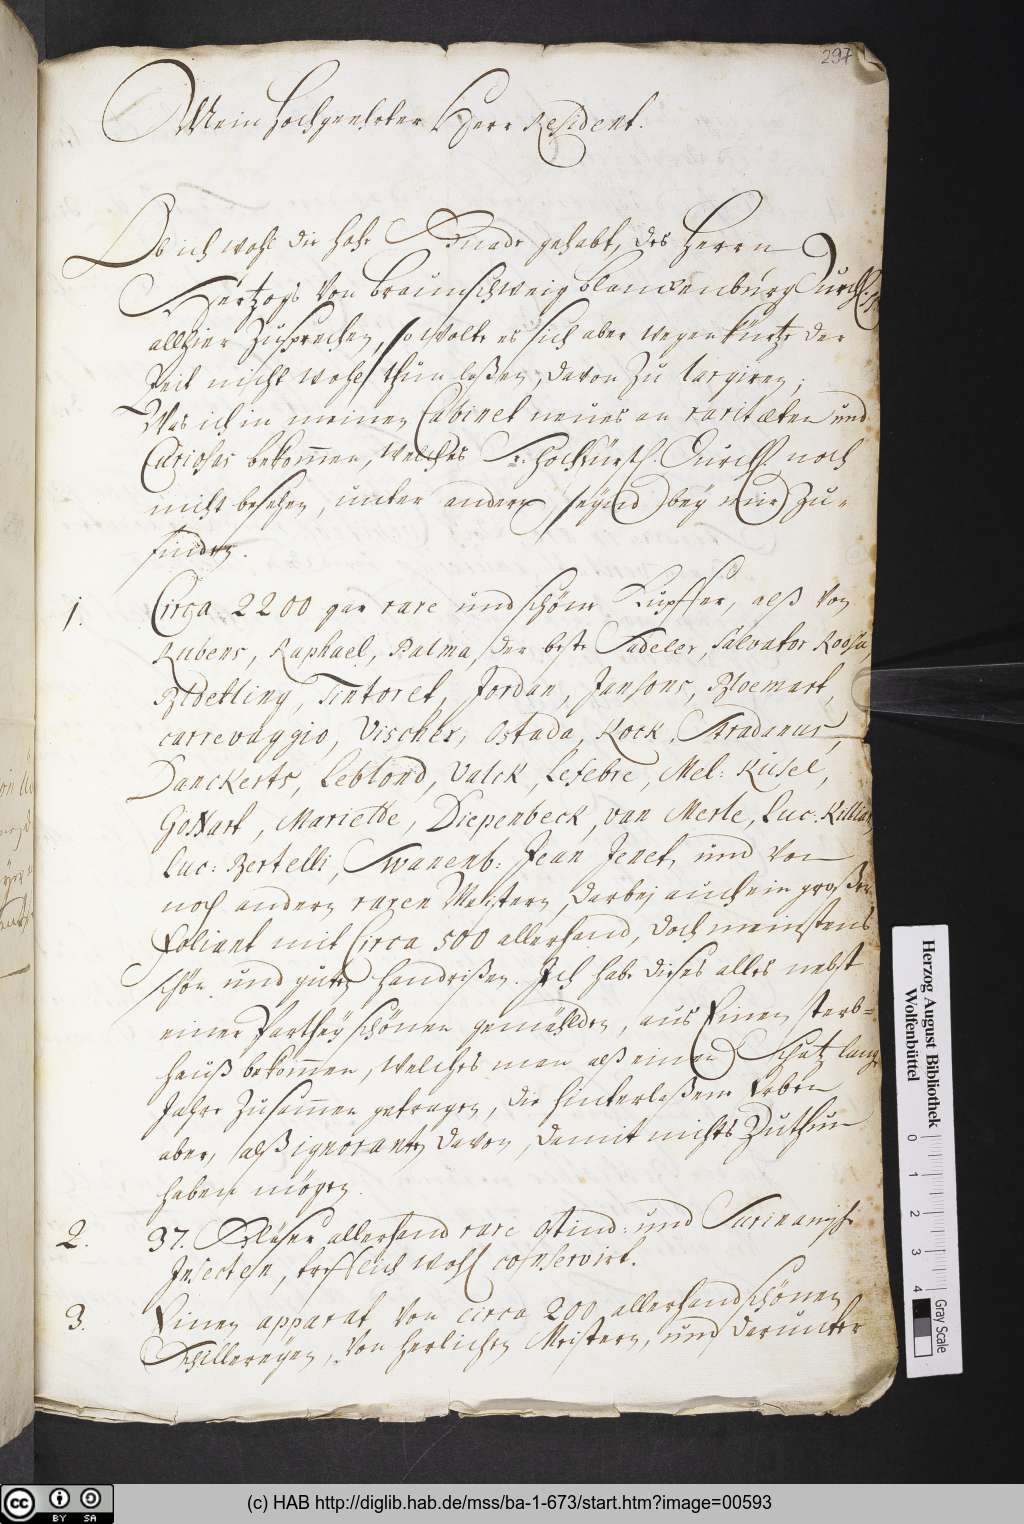 297
Mein Hochgeehrter Herr Resident.
Ob ich wohl die hohe Gnade gehabt, des Herrn
Hertzogs von Braunschweig Blanckenburg Durchl:
allhier Zusprechen, so wolte es sich aber wegen Kürtze der
Zeit nicht wohl thun laßen, davon Zu largiren;
Was ich in meinen Cabinet neues an raritæten und
Curiosas bekom̄en, welches Sr: Hochfürstl. Durchl. noch
nicht besehen, unter andern seÿnd beÿ mir Zu-
finden.
1. Circa 2200 gar rare und schöne Kupffer, alß von
Rubens, Raphael, Palma, der beste Sadeler, Salvator Roosa,
Bloteling, Tintoret, Jordan, Jansons, Bloemart,
carrevaggio, Vischer, Ostada, Kock, Stradanus,
Danckerts, Leblond, Valck, Lefebre, Mel: Küsel,
Goltzart, Mariette, Diepenbeck, van Merle, Luc. Killian,
Luc: Bertelli, Swanenb: Jean Jenet, und von
noch andern raren Meistern, darbej auch ein großer
Foliant mit Circa 500 allerhand, doch meinstens
schön und guten Handrißen. Ich habe dieses alles nebst
einer Parthey schönen gemählden, aus Einen sterb-
hauß bekom̄en, welches man alß einen Schatz lange
Jahre Zusam̄en getragen, die hinterlaßene Erben
aber, alß ignoranten davon, damit nichts Zuthun
haben mögen.
2. 37. Gläser allerhand rare Ostind: und Surinanische
Insecten, trefflich wohl conservirt.
3. Einen apparat von circa 200 allerhand schönen
Schillereÿen, von herlichen Meistern, und darunter
Herzog August Bibliothek
Wolfenbüttel
0 1 2 3 4
Gray Scale
cc BY SA
(c) HAB http://diglib.hab.de/mss/ba-1-673/start.htm?image=00593